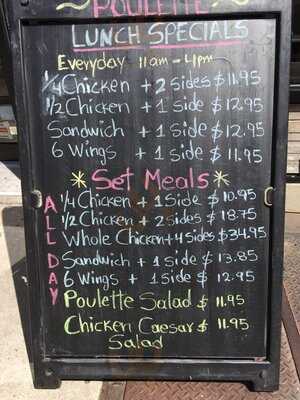 POULETTE
LUNCH SPECIALS
Everyday 11am - 4pm
1/4 Chicken + 2 Sides $11.95
1/2 Chicken + 1 Side $12.95
Sandwich + 1 Side $12.95
6 Wings + 1 Side $11.95
*Set Meals*
1/4 Chicken + 1 Side $10.95
1/2 Chicken + 2 Sides $18.75
Whole Chicken + 4 Sides $34.95
Sandwich + 1 Side $13.85
6 Wings + 1 Side $12.95
Poulette Salad $11.95
Chicken Caesar $11.95
Salad
ALL DAY